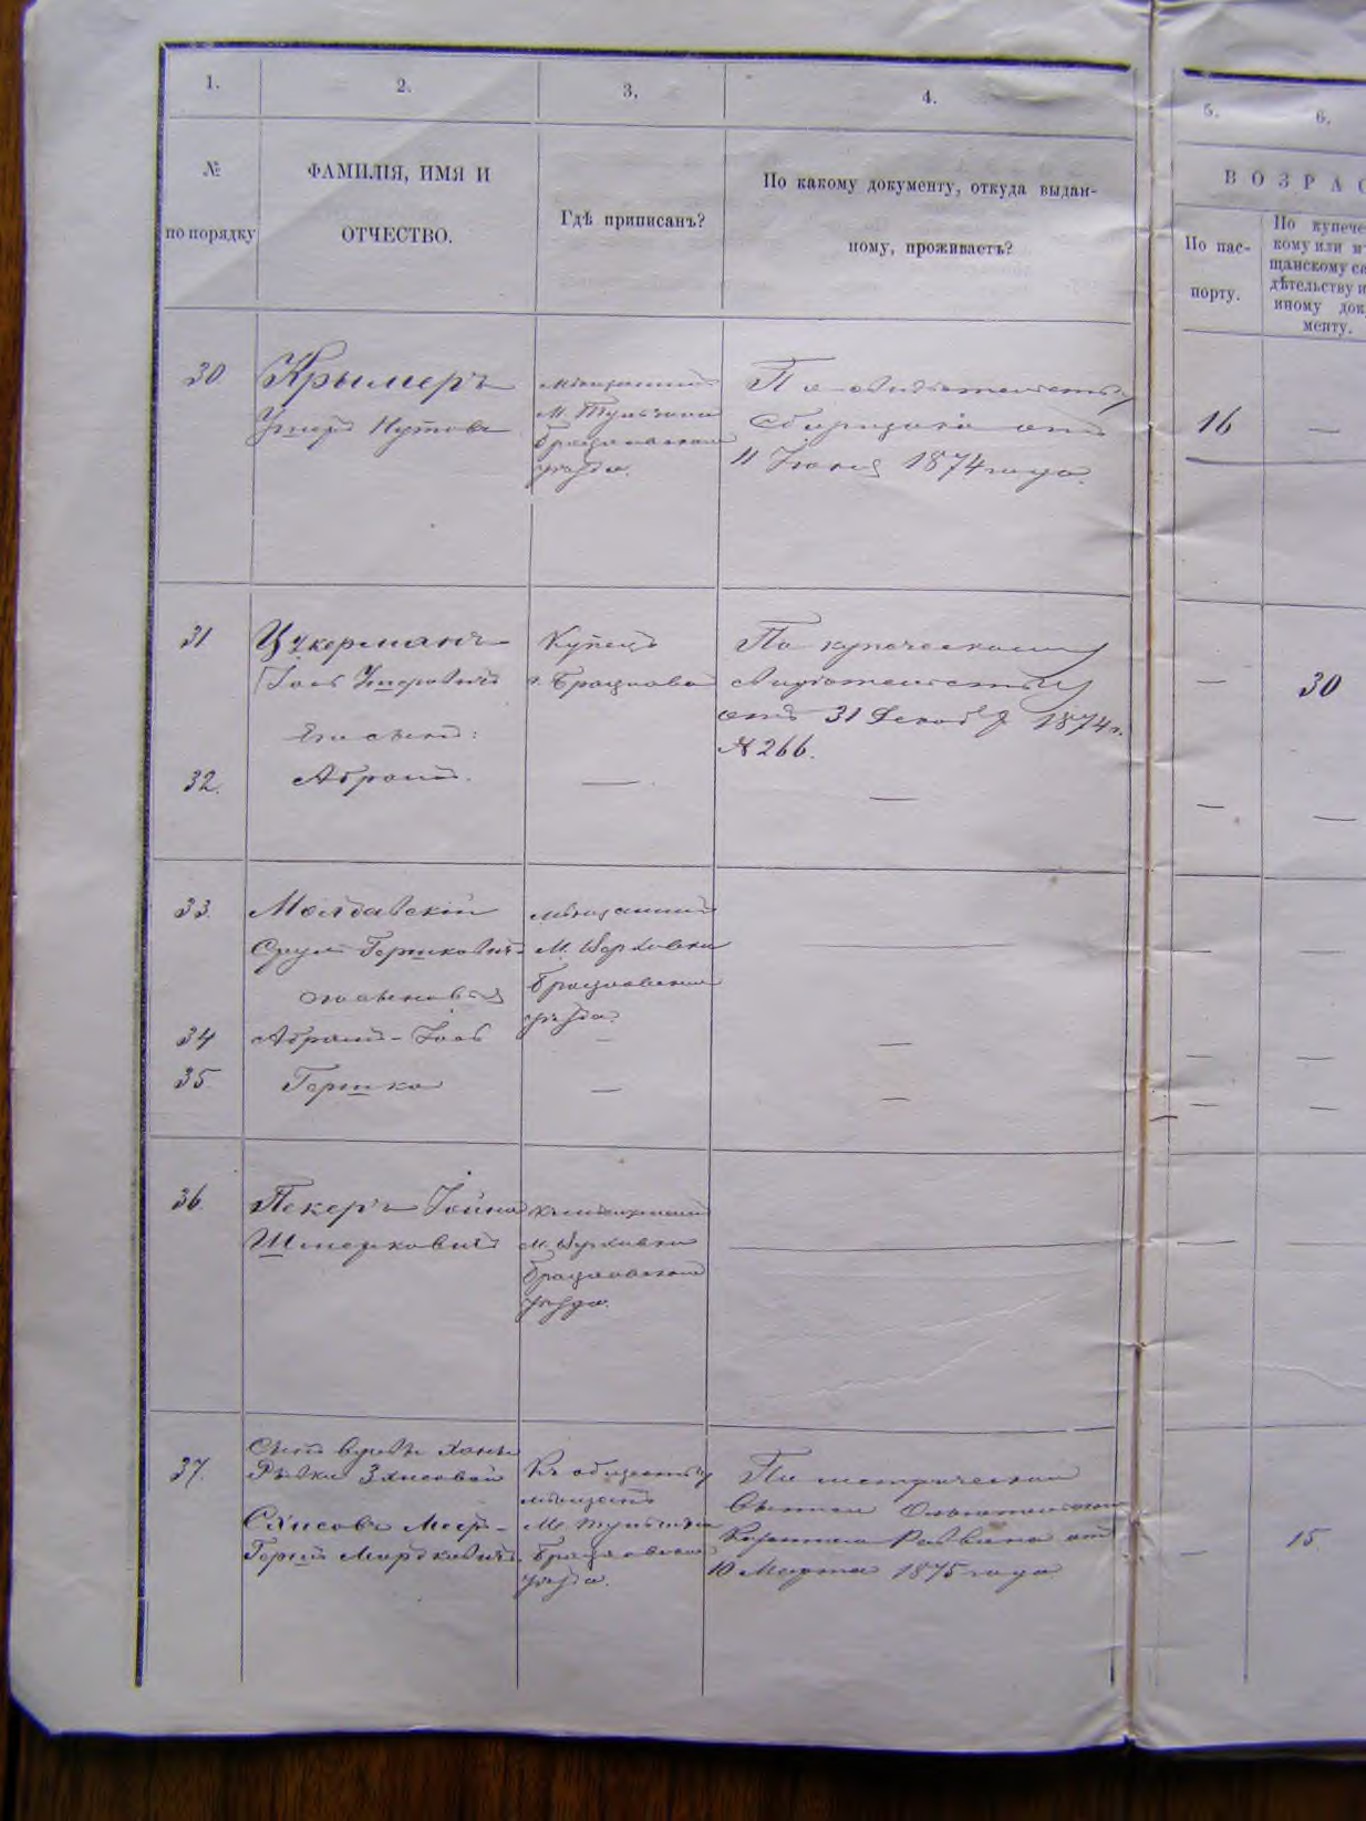 1.
2.
3.
4.
5.
6.
№
по порядку
ФАМИЛІЯ, ИМЯ И
ОТЧЕСТВО.
Гдѣ приписанъ?
По какому документу, откуда выдан-
ному, проживаетъ?
ВОЗРАС
По пас-
порту.
По купече
кому или м
щанскому св
дѣтельству и
иному док
менту.
30
Крымеръ
мѣщанинъ
По свидѣтельству
м. Тульчина
от
Брацлавскаго
11 Іюня 1874 года.
уѣзда.
16
—
31
Цукерманъ
Іось
Купецъ
г. Брацлава
По купеческому
свидѣтельству
отъ 31 Декабря 1874 г.
№ 266.
—
30
Его сынъ:
32.
Абрамъ.
—
—
—
—
33.
Молдавскій
Срулъ Гершковичъ
мѣщанинъ
м. Верховки
Брацлавскаго
уѣзда.
—
—
сыновья
34
Абрамъ-Іось
—
—
—
—
35
Гершко
—
—
—
—
36.
Пекеръ Іойна
Шмерковичъ
мѣщанинъ
м. Верховки
Брацлавскаго
уѣзда.
—
—
—
37.
Сынъ вдовы Ханы
Рывки
Меер-
Герш Мордковичъ
Къ обществу
мѣщанъ
м. Тульчина
Брацлавскаго
уѣзда.
По метрической
Казеннаго Раввина от
10 Марта 1875 года
—
15.